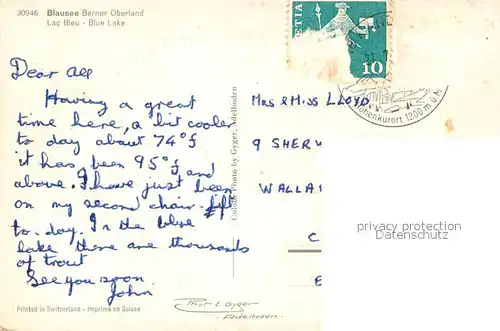 30946 Blausee Berner Oberland
Lac Bleu - Blue Lake
Dear All
Having a great
time here, a bit cooler
to day about 74°f
it has been 95°f and
above. I have just been
on my second chair-lift
to-day. In the blue
lake there are thousands
of trout
See you soon.
John
Printed in Switzerland - Imprimé en Suisse
Colour Photo by Gyger, Adelboden
Phot E Gyger
Adelboden
HELVETIA
10
Höhenkurort 1200 m ü. M.
Mrs & Miss LLOYD
9 SHER
WALLA
C
E
privacy protection
Datenschutz